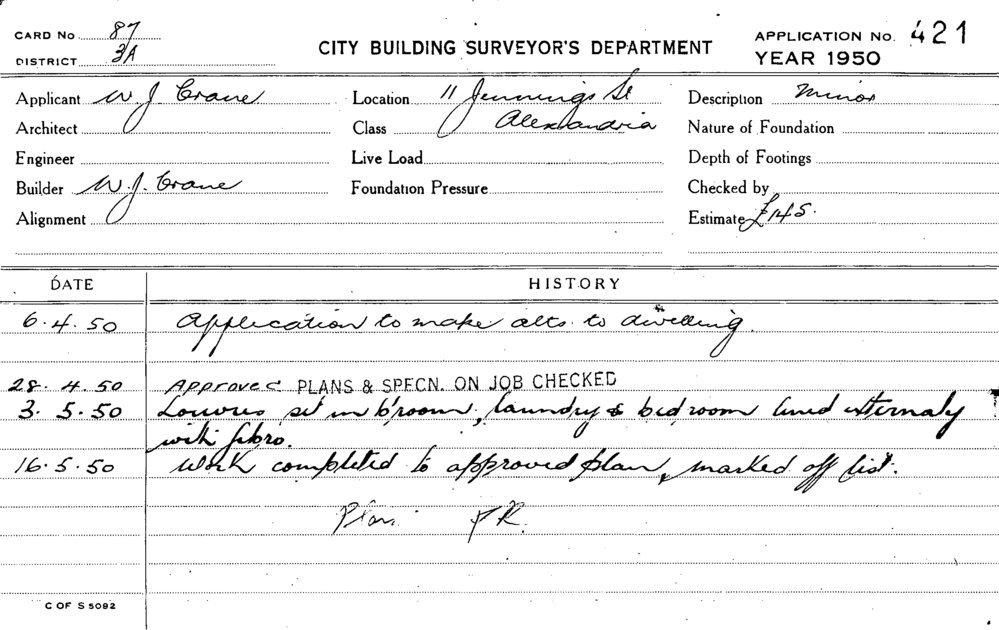 CARD No 87
DISTRICT 3A
CITY BUILDING SURVEYOR'S DEPARTMENT
APPLICATION No. 421
YEAR 1950
Applicant W. J. Crane
Location 11 Jennings St
Description Minor
Architect
Class Alexandria
Nature of Foundation
Engineer
Live Load
Depth of Footings
Builder W. J. Crane
Foundation Pressure
Checked by
Alignment
Estimate £145.
DATE HISTORY
6.4.50 Application to make alts. to dwelling.
28.4.50 Approved PLANS & SPECN. ON JOB CHECKED
3.5.50 Louvres set in b'room, laundry & bedroom lined externaly
with fibro.
16.5.50 Work completed to approved plan, marked off list.
Plan
C OF S 5092